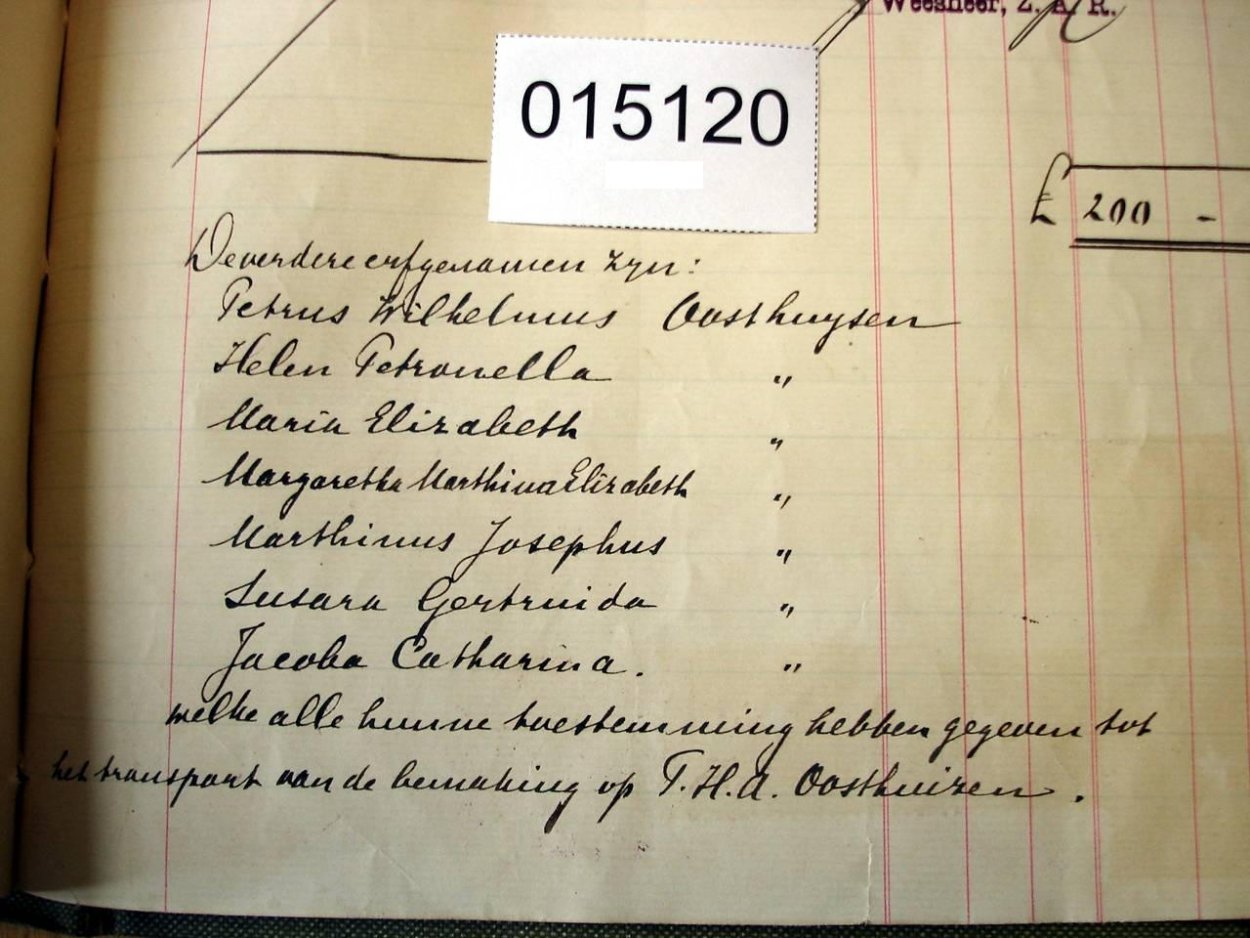 Weesheer, Z. A. R.
015120
£ 200 -
De verdere erfgenamen zyn:
Petrus Wilhelmus Oosthuysen
Helen Petronella "
Maria Elizabeth "
Margaretha Marthina Elizabeth "
Marthinus Josephus "
Susara Gertruida "
Jacoba Catharina. "
welke alle hunne toestemming hebben gegeven tot
het transport van de bemaking op T. H. A. Oosthuizen.